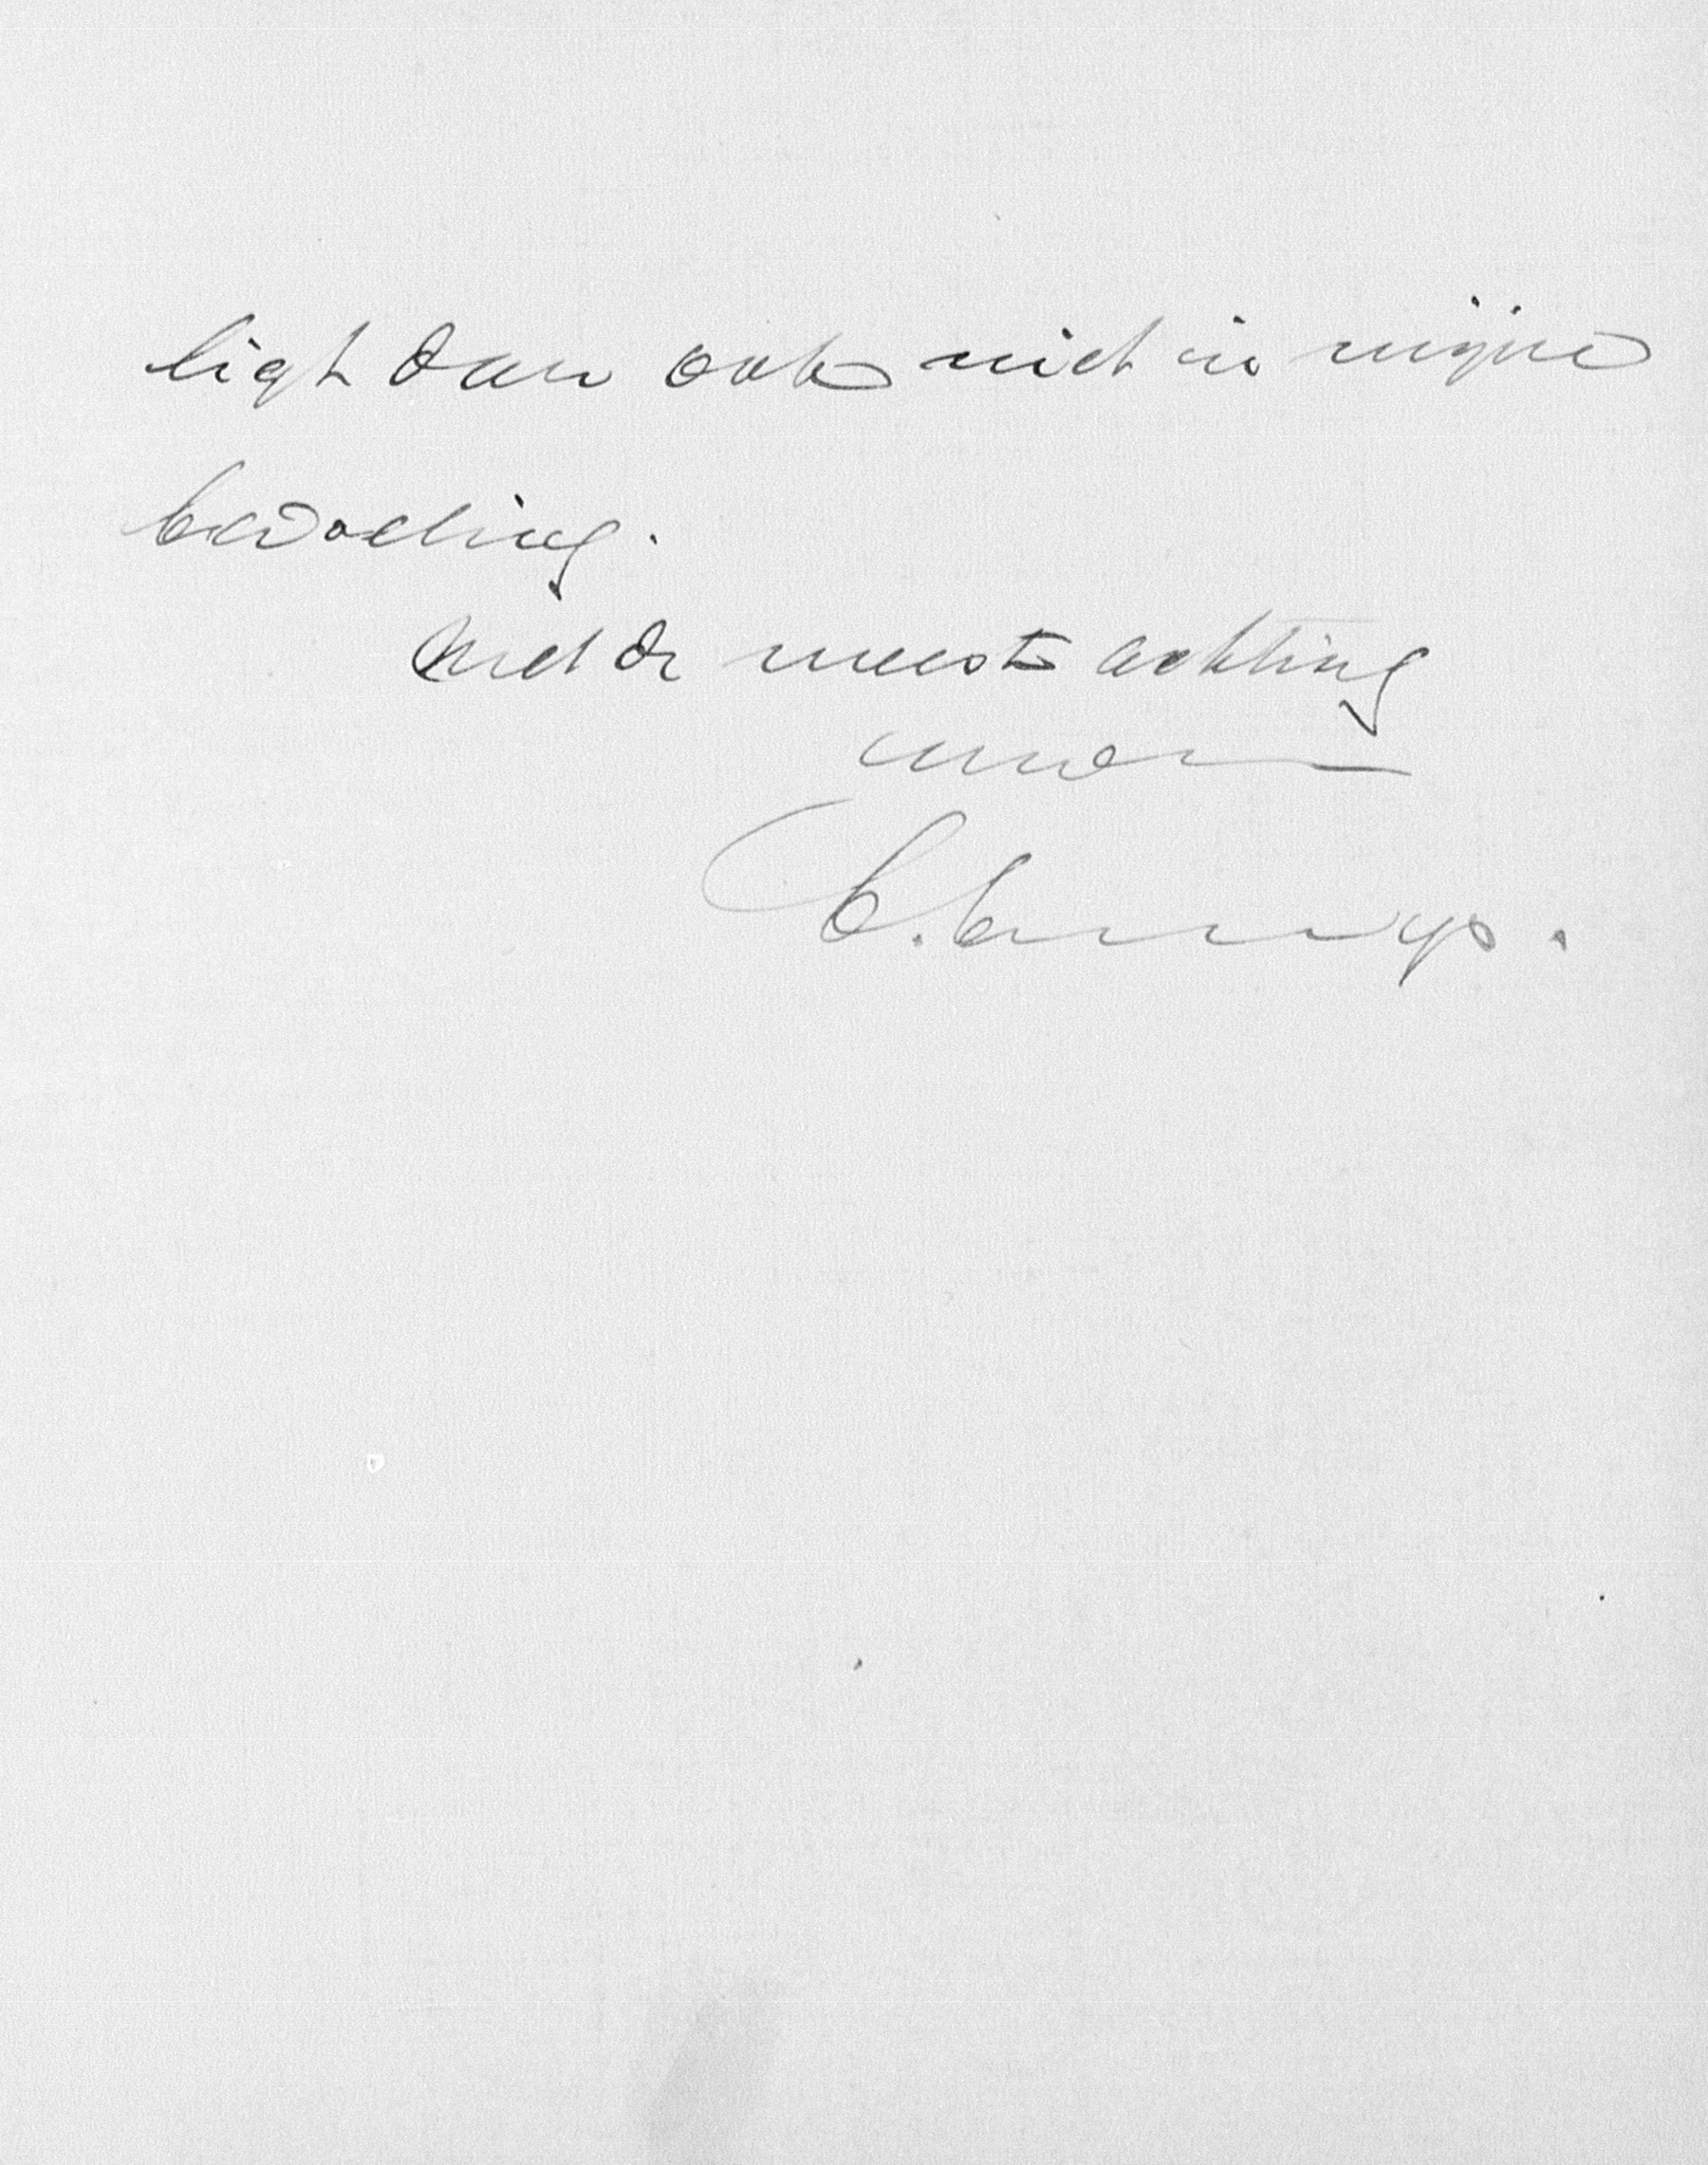 ligt dan ook niet in mijne
bedoeling.
Met de meeste achting